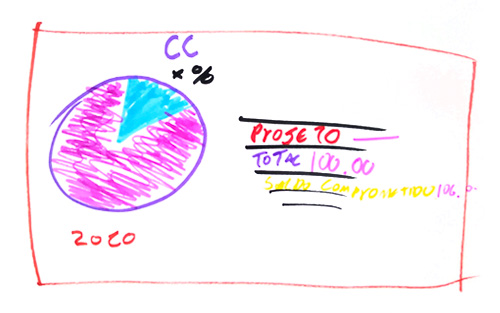 CC
x %
PROJETO
TOTAL 100.00
SALDO COMPROMETIDO 106.0
2020